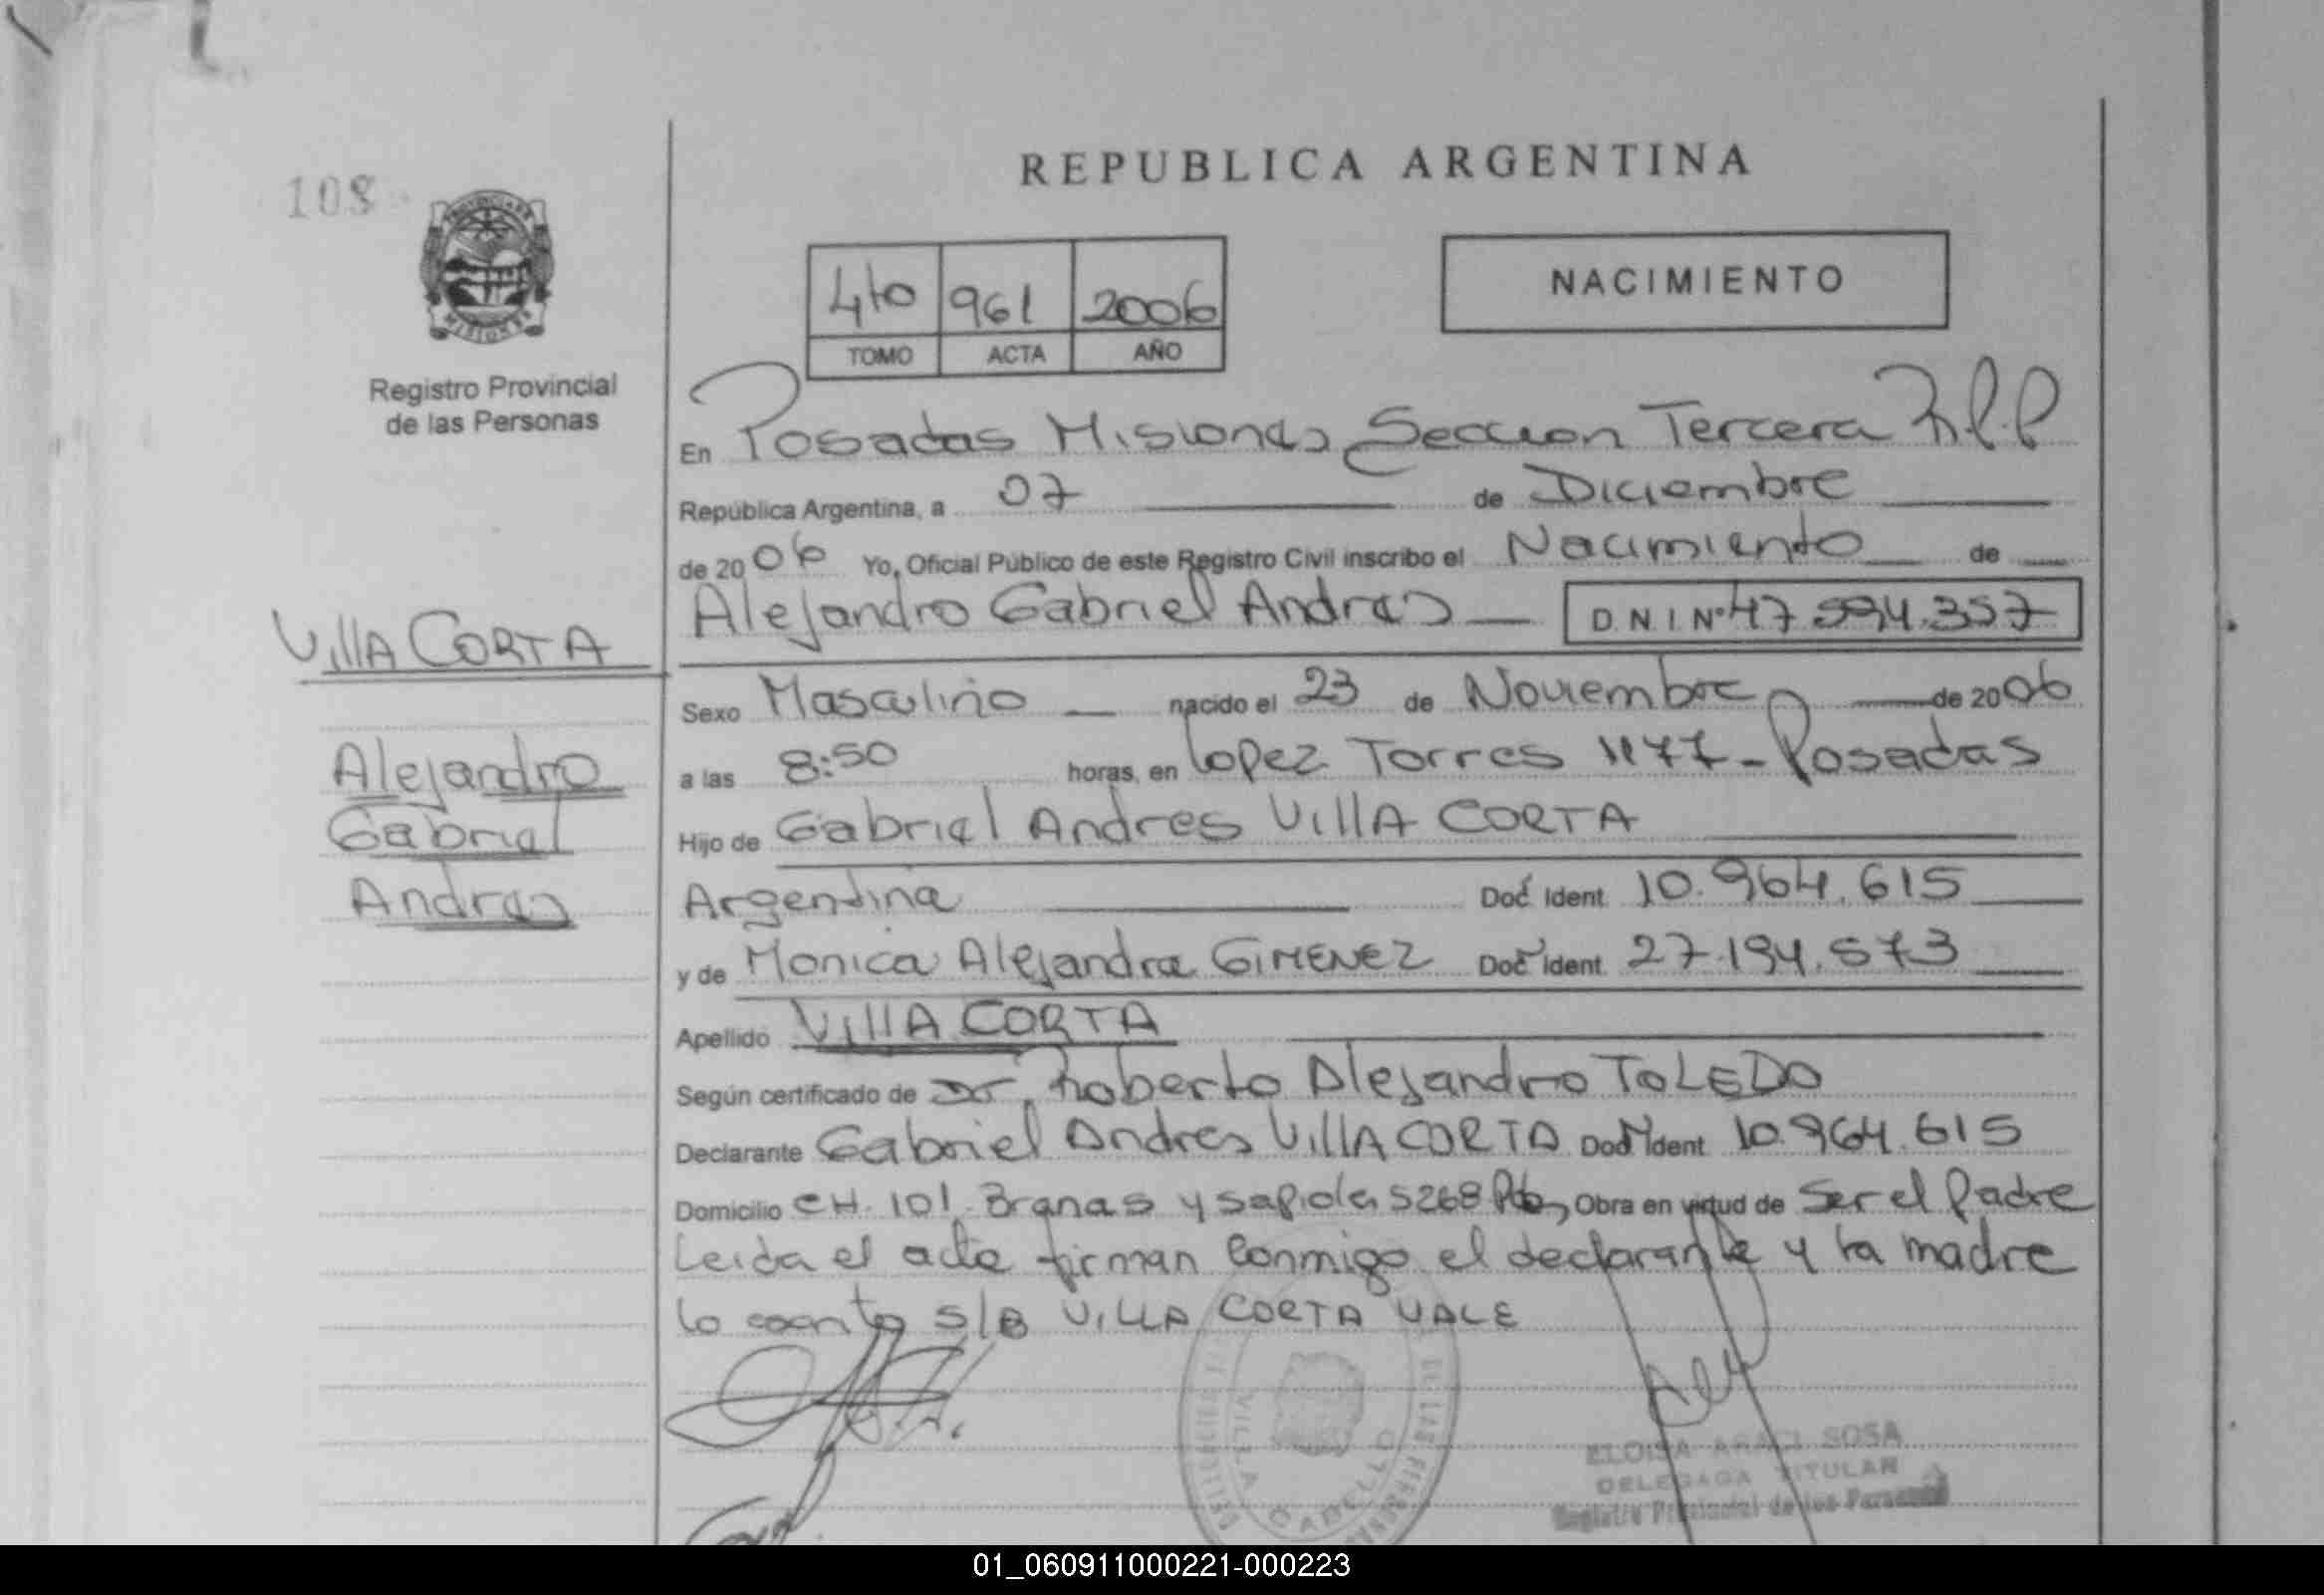 REPUBLICA ARGENTINA
108
4to 961 2006
TOMO ACTA AÑO
NACIMIENTO
MISIONES
Registro Provincial
de las Personas
En Posadas Misiones Seccion Tercera R.P.P
República Argentina, a 07 de Diciembre
de 2006 Yo, Oficial Público de este Registro Civil inscribo el Nacimiento de
Alejandro Gabriel Andres D.N.I Nº 47.594.357
VIllA CORTA
Alejandro
Gabriel
Andres
Sexo Masculino nacido el 23 de Noviembre de 2006
a las 8:50 horas, en Lopez Torres 1177-Posadas
Hijo de Gabriel Andres VIllA CORTA
Argentina Doc Ident 10.964.615
y de Monica Alejandra GIMENEZ Doc Ident. 27.194.573
Apellido VIllA CORTA
Según certificado de Dr. Roberto Alejandro TOLEDO
Declarante Gabriel Andres VIllA CORTA Doc Ident 10.964.615
Domicilio CH. 101. Branas y Sapiola 5268 Obra en virtud de Ser el Padre
Leida el acta firman conmigo el declarante y la madre
Lo escrito S/B VILLA CORTA VALE
VILLA CABELLO
ELOISA ARACI SOSA
DELEGADA TITULAR
Registro Provincial de las Personas
01_060911000221-000223